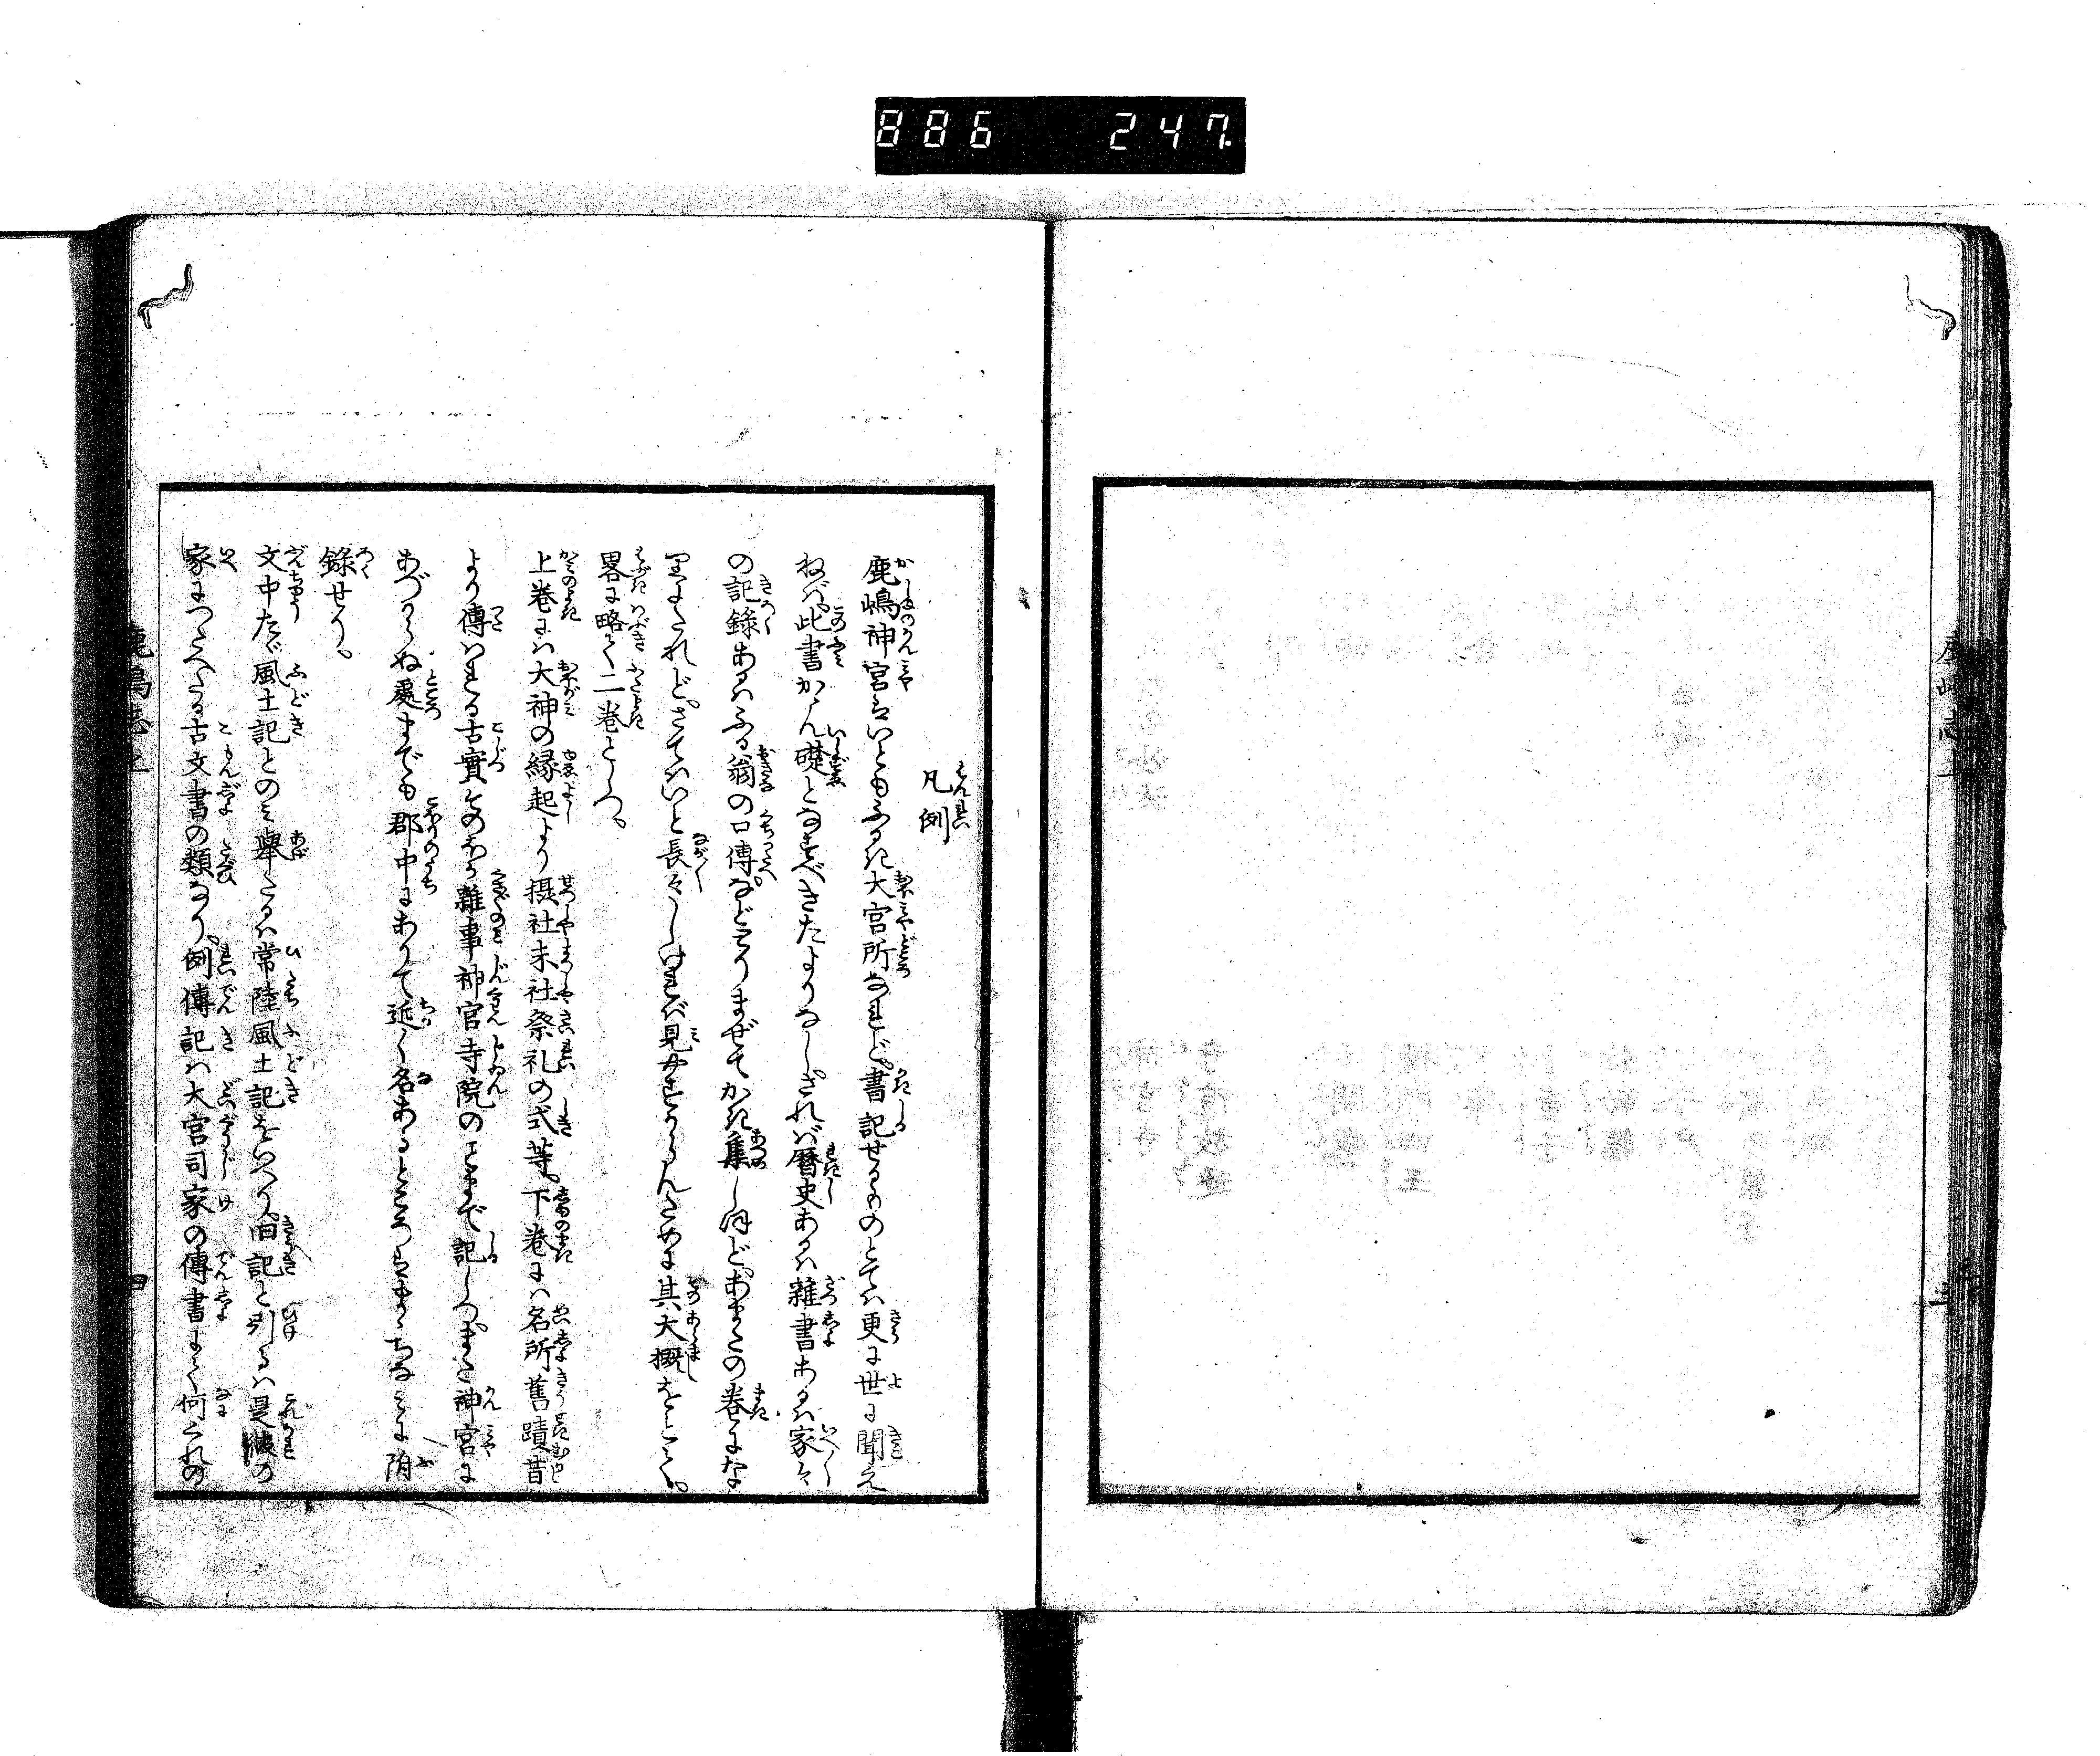 886 247
凡例
鹿嶋神宮はいともふるき大宮所なれど。書記せるものとては更に世に聞え
ねば。此書かん礎となすべきたよりなし。されば暦史あるは雑書あるは家々
の記録あるはふる翁の口傳。などとりまぜてかき集し〳〵ほど。あまたの巻になりに
たれど。さてはいと長々しければ見やすからんために其大概をとりて。
畧に略て二巻としつ。
上巻には大神の縁起より摂社末社祭礼の式等。下巻には名所舊蹟昔
より傳はれる古實そのほか雑事神官寺院のことまで記しつ。また神宮に
あづからぬ處までも郡中にありて近く名あるところはちなみに附
錄せり。
文中たゞ風土記とのみ擧たるは常陸風土記をいへり。旧記と引るは是彼の
家につたへたる古文書の類なり。例傳記は大宮司家の傳書にて何くれの
鹿嶋志上
四